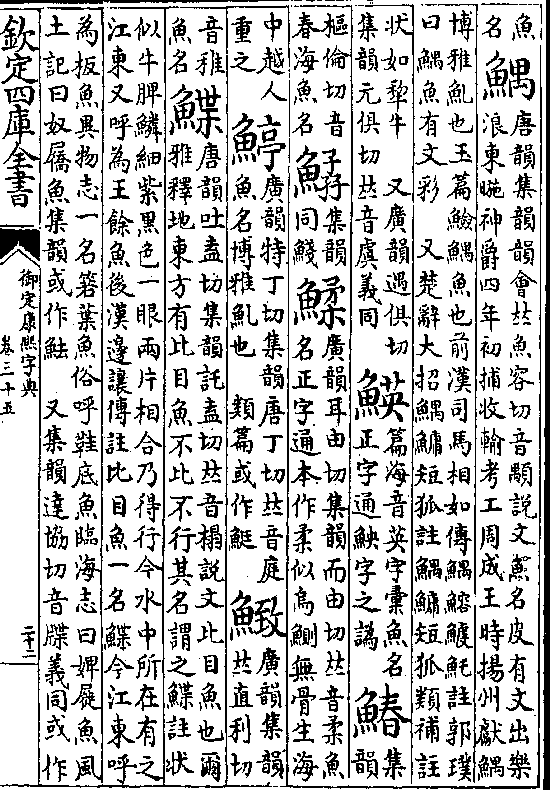 魚
名 鰅 唐韻集韻韻會𠀤魚容切音顒說文鰅名皮有文出樂
浪東暆神爵四年初捕收輸考工周成王時揚州獻鰅
博雅魜也玉篇鱠鰅魚也前漢司馬相如傳鰅鰫鰬魠註郭璞
曰鰅魚有文彩 又楚辭大招鰅鱅短狐註鰅鱅短狐類補註
狀如犂牛 又廣韻遇俱切
集韻元俱切𠀤音虞義同 鰔 篇海音英字彙魚名
正字通鉠字之譌 鰆 集韻
樞倫切音
春海魚名 子 孖集韻
同鰻 鰇 廣韻耳由切集韻而由切𠀤音柔魚
名正字通本作柔似烏鰂無骨生海
中越人
重之 鯙 廣韻特丁切集韻唐丁切𠀤音庭
魚名博雅魜也 類篇或作鯅 緻 廣韻集韻
𠀤直利切
音稚
魚名 鰈 唐韻吐盍切集韻託盍切𠀤音榻說文比目魚也爾
雅釋地東方有比目魚不比不行其名謂之鰈註狀
似牛脾鱗細紫黑色一眼兩片相合乃得行今水中所在有之
江東又呼為王餘魚後漢邊讓傳註比目魚一名鰈今江東呼
為板魚異物志一名箬葉魚俗呼鞋底魚臨海志曰婢屣魚風
土記曰奴屩魚集韻或作魼 又集韻達協切音牒義同或作
欽定四庫全書
御定康熙字典
卷三十五
二十二